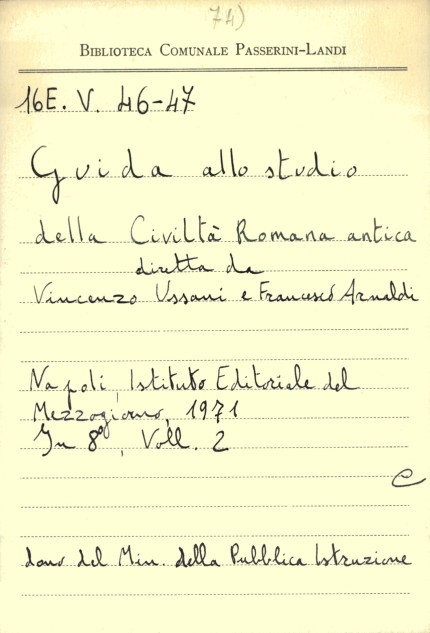 74)
BIBLIOTECA COMUNALE PASSERINI-LANDI
16E. V. 46-47
Guida allo studio
della Civiltà Romana antica
diretta da
Vincenzo Ussani e Francesco Arnaldi
Napoli, Istituto Editoriale del
Mezzogiorno, 1971
In 8°, Voll. 2
e
dono del Min. della Pubblica Istruzione